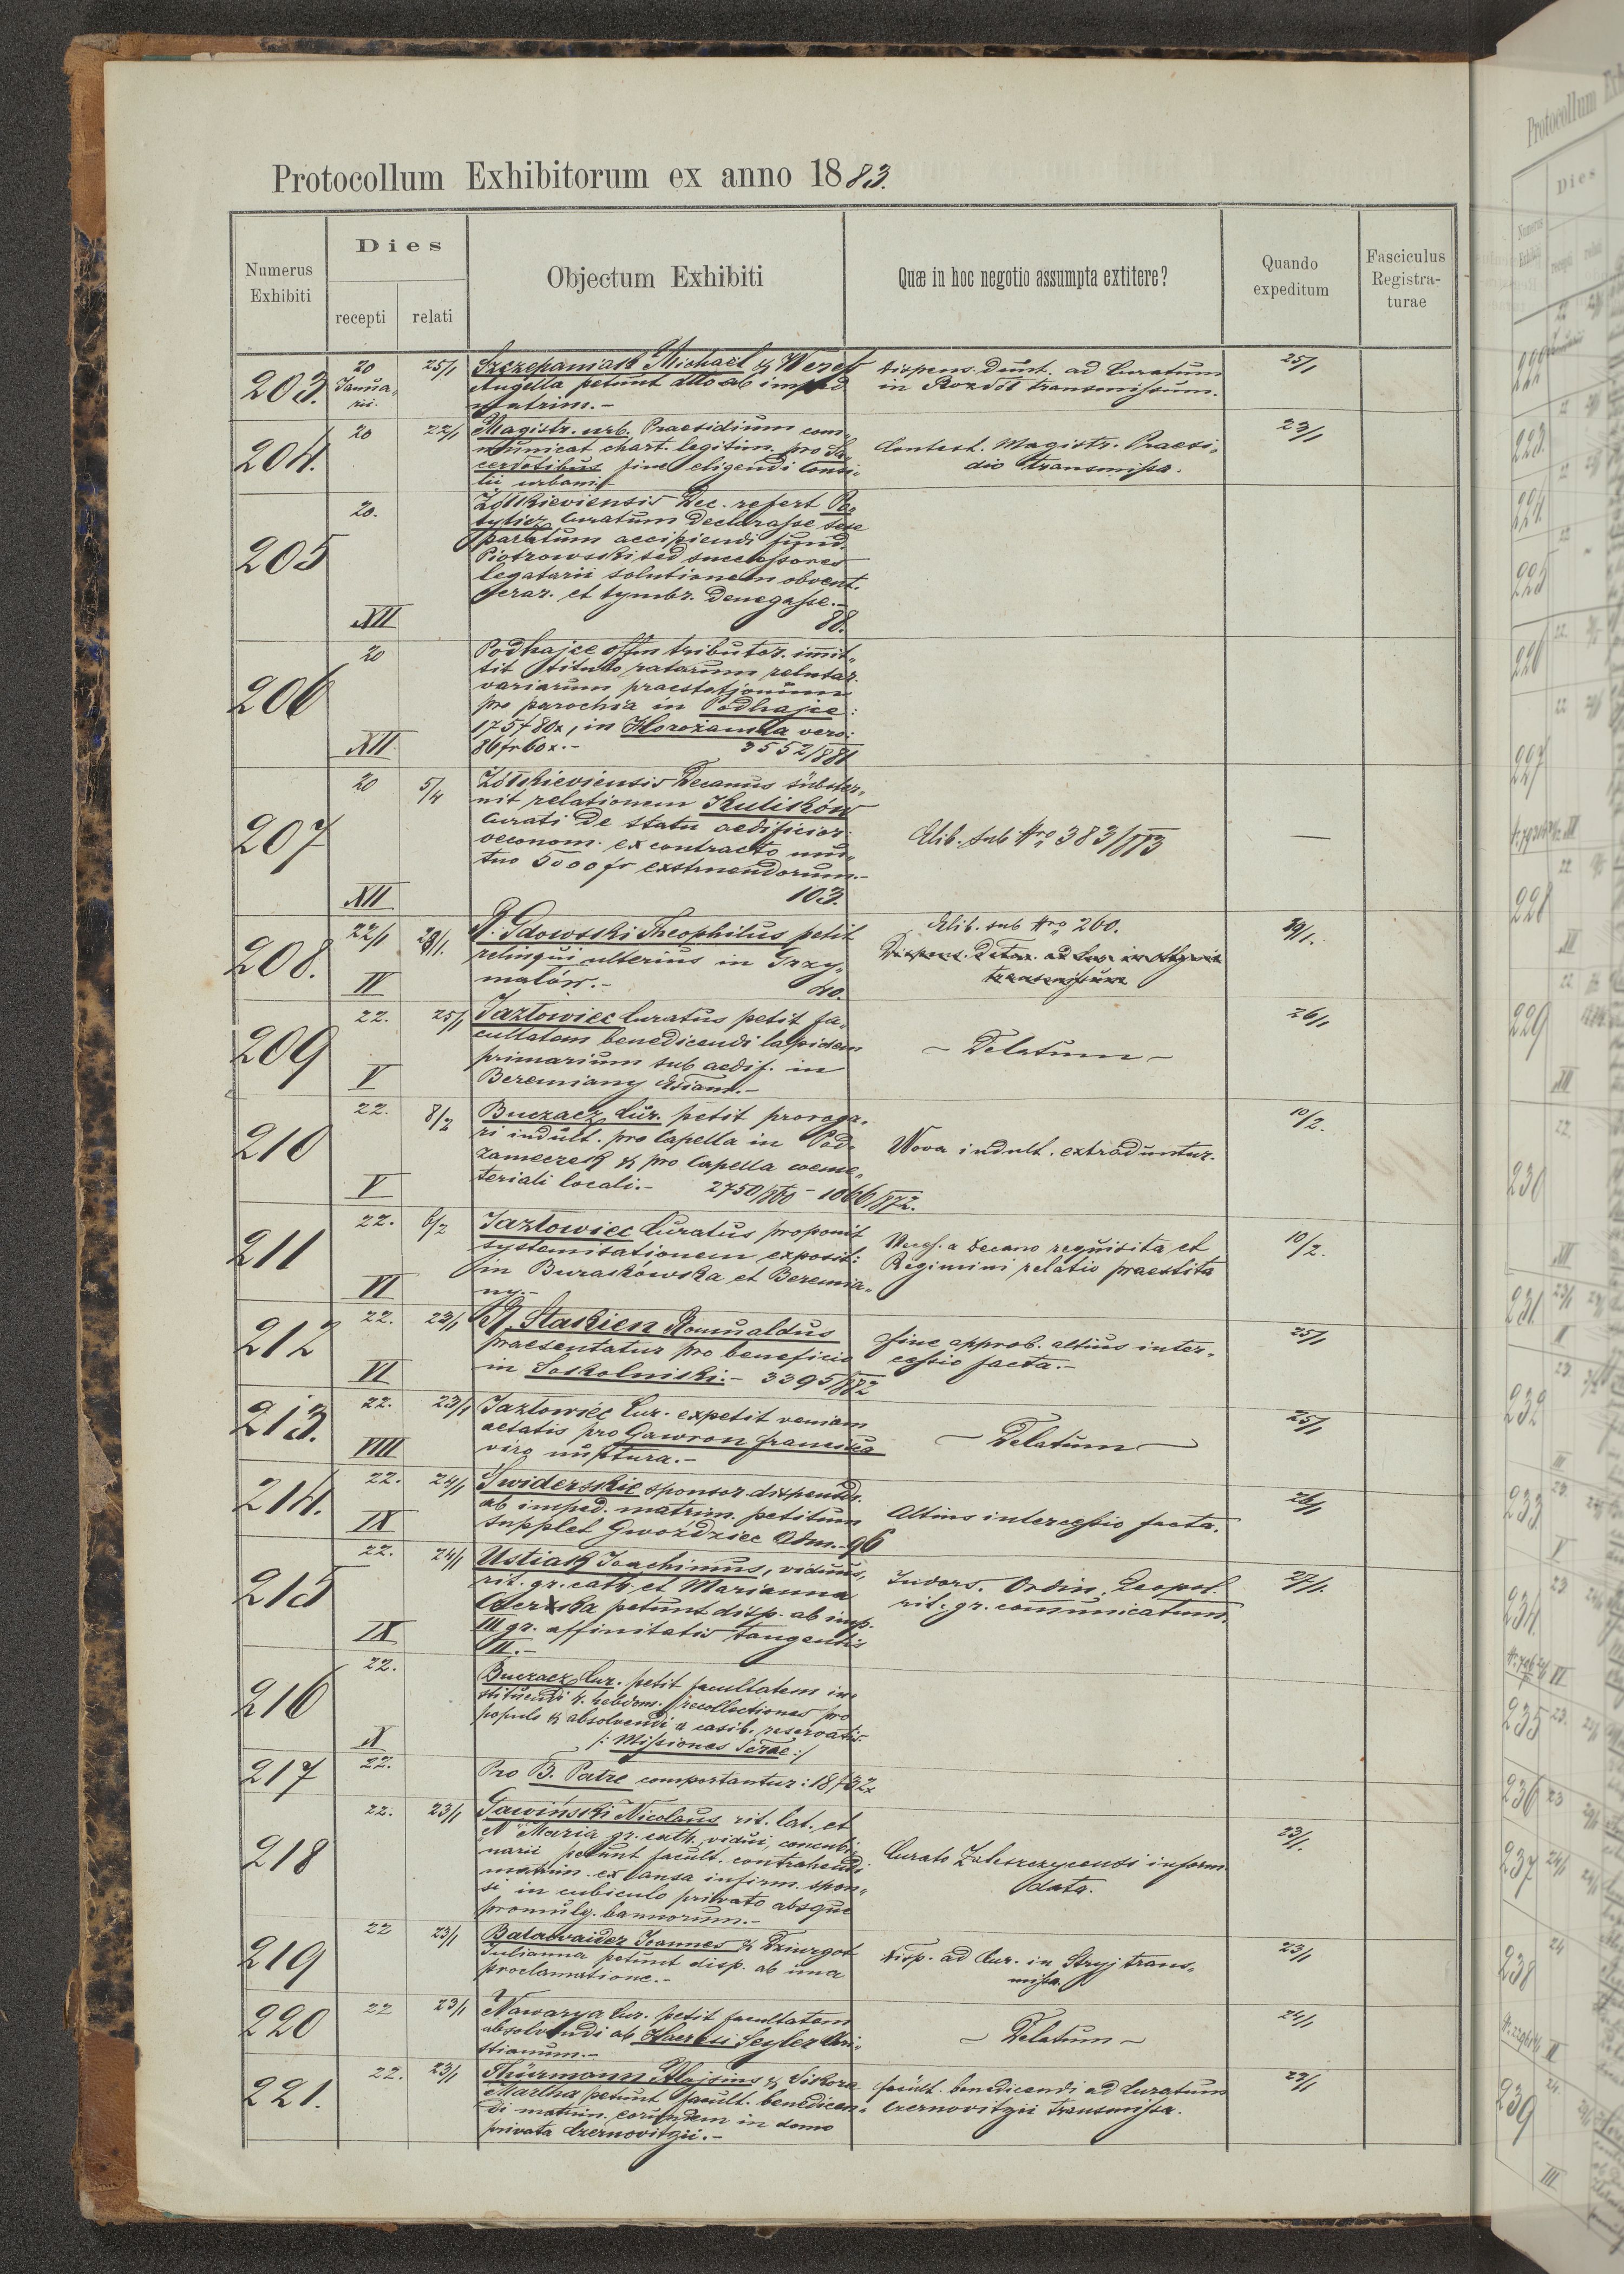 Protocollum Exhibitorum ex anno 1883.
Numerus Exhibiti
Dies
recepti
relati
Objectum Exhibiti
Quæ in hoc negotio assumpta extitere?
Quando expeditum
Fasciculus Registra-
turae
203. 20 Janua- rii. 25/1
Szczepaniak Michael &
Angella petunt dtto ab imped
matrim.-
Dispens. Dunt. ad Curatum
in Rozdół transmissum.
25/1
204. 20 22/1
Magistr. urb. Praesidium com-
municat chart. legitim. pro Sa-
cerdotibus fine eligendi Consi-
lii urbani.-
Contest. Magistr. Praesi-
dio transmissa.
23/1
205 20. XII
Żółkieviensis Dec. refert
Curatum declarasse sese
paratum accipiendi fund.
Piotrowski sed successores
legatarii solutionem obvent.
aerar. et tymbr. denegasse.-
88.
206 20 XII
Podhajce offm tributor. immit-
tit titulo ratarum relutar.
variarum praestationum
pro parochia in Podhajce:
175f 80x, in Horożanka vero:
86fr 60x.- 3552/881
207 20 5/4 XII
Żółkieviensis Decanus subster-
nit relationem Kulików
Curati de statu aedificior.
oeconom. ex contracto mu-
tuo 5000 fr exstruendorum.-
103.
Elib. sub Nro 383/883
—
208. 22/1 29/1. IV
R. Gdowski Theophilus petit
relinqui ulterius in Grzy-
małów.- 40.
Elib. sub Nro 260.
29/1.
209 22. 25/1 V
Jazłowiec Curatus petit fa-
cultatem benedicendi lapidem
primarium sub aedif. in
Beremiany
- Delatum -
26/1
210 22. 8/2 V
Buczacz Cur. petit proroga-
ri indult. pro Capella in Pod-
zameczek & pro Capella coeme-
teriali locali.- 2750/860 - 1066/872.
Nova indult. extraduntur.
10/2.
211 22. 6/2 VI
Jazłowiec Curatus proponit
systemisationem exposit:
in Burakówka et Beremia-
ny.-
a Decano requisita et
Regimini relatio praestita
10/2.
212 22. 23/1 VI
R. Stankien Romualdus
praesentatus pro beneficio
in Sokolniki:- 3395/882
fine approb. altius inter-
cessio facta.-
25/1
213. 22. 23/1 VIII
Jazłowiec Cur. expetit veniam
aetatis pro Gawron Francisca
viro nuptura.-
- Delatum -
25/1
214. 22. 24/1 IX
Swiderskie sponsor. dispensds.
ab imped. matrim. petitum
supplet Gwoździec Adm.- 96
Altius intercessio facta.
26/1
215 22. 24/1 IX
Ustiak Joachimus, viduus,
rit. gr. cath. et Marianna
petunt disp. ab imp.
III gr. affinitatis tangentis
II.-
Indors. Ordin. Leopol.
rit. gr. communicatum.
27/1.
216 22. X
Buczacz Cur. petit facultatem in-
stituendi 4. hebdom. recollectiones pro
populo & absolvendi a casib. reservatis.
/: Missiones Strae :/
217 22.
Pro B. Patre comportantur: 18f 32x
218 22. 23/1
Gawiński Nicolaus rit. lat. et
"N" Maria gr. cath. vidui, concubi-
narii petunt facult. contrahendi
matrim. ex causa infirm. spon-
si in cubiculo privato absque
promulg. bannorum.-
Curato Zaleszczycensi inform.
data.
23/1.
219 22 23/1
Balawaider Joannes &
Julianna petunt disp. ab una
proclamatione.-
Disp. ad Cur. in Stryj trans-
missa.
23/1
220 22 23/1
Nawarya Cur. petit facultatem
absolvendi ab Haeresi Segler Chri-
stianum.-
- Delatum -
24/1
221. 22. 23/1
Thürmann Aloysius & Sikora
Martha petunt facult. benedicen-
di matrim. eorundem in domo
privata Czernovitzii.-
facult. benedicendi ad Curatum
Czernovitzii transmissa.
23/1
Protocollum
Dies
223.
224
225
226
227
228
229
230
231
232
233
234
235
236
237
238
239